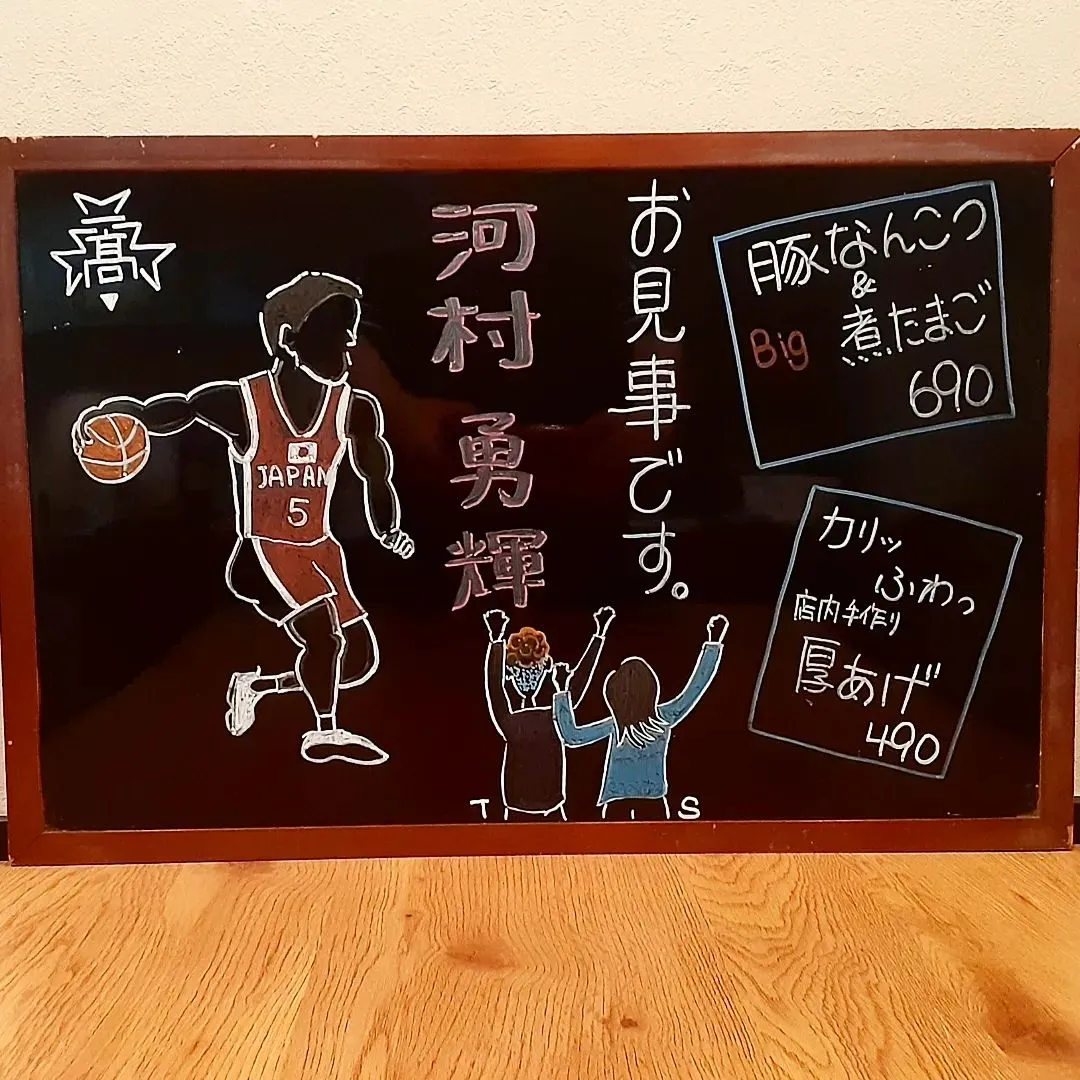 三高
JAPAN
5
河村 勇輝
お見事です。
豚なんこつ
&
Big 煮たまご
690
カリッ
ふわっ
店内手作り
厚あげ
490
T S